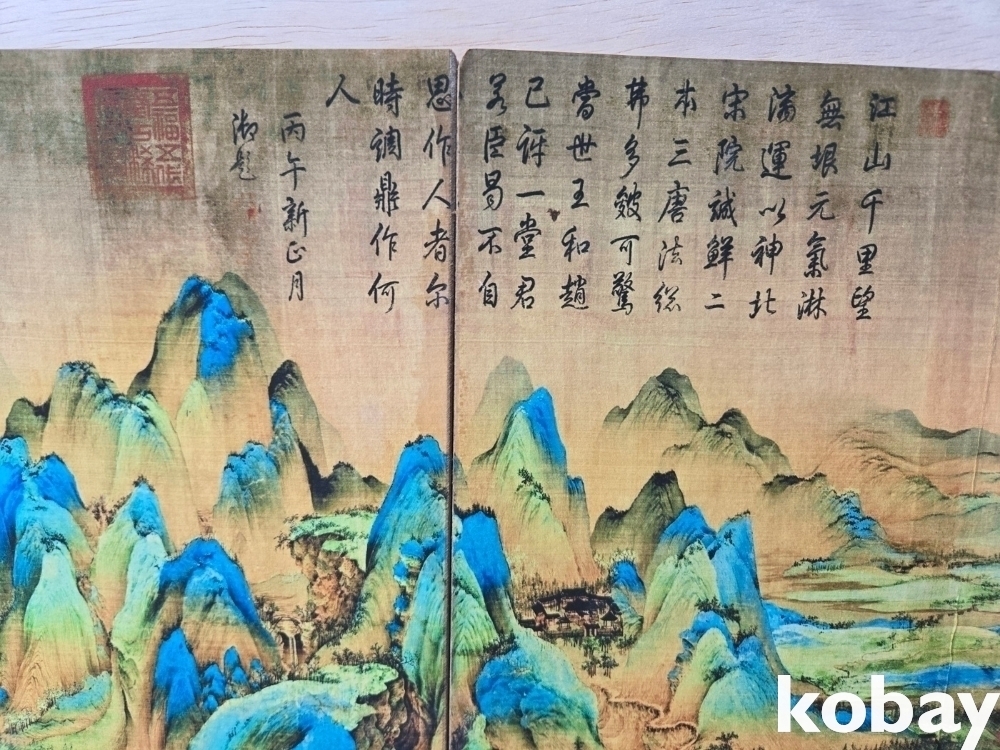 江山千里望
無垠元氣淋
漓運以神北
宋院誠鮮二
本三唐法総
弗多皴可驚
當世王和趙
已訝一堂君
若臣曷不自
思作人者尔
時調鼎作何
人
丙午新正月
御題
kobay